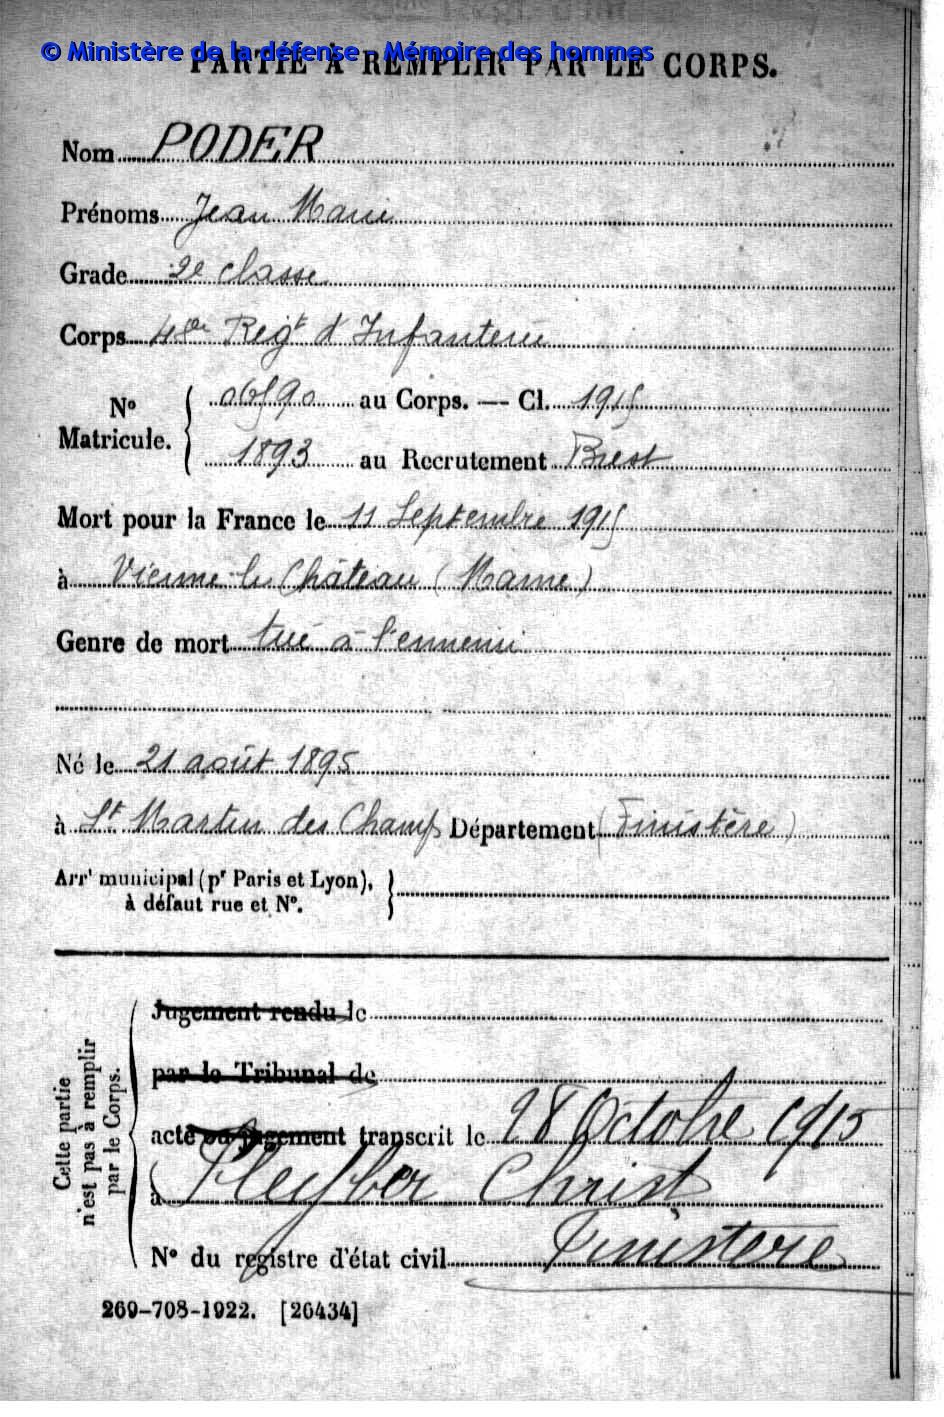 © Ministère de la défense - Mémoire des hommes
PARTIE À REMPLIR PAR LE CORPS.
Nom PODER
Prénoms Jean Marie
Grade 2e classe
Corps 48e Regt d'Infanterie
No Matricule. { 06590 au Corps. — Cl. 1915
1893 au Recrutement Brest
Mort pour la France le 11 Septembre 1915
à Vienne le Château (Marne)
Genre de mort tué à l'ennemi
Né le 21 août 1895
à St Martin des Champs Département (Finistère)
Arrt municipal (pr Paris et Lyon),
à défaut rue et No.
Cette partie n'est pas à remplir par le Corps.
Jugement rendu le
par le Tribunal de
acte ou jugement transcrit le 28 Octobre 1915
à Pleyber Christ
No du registre d'état civil Finistere
269-708-1922. [26434]